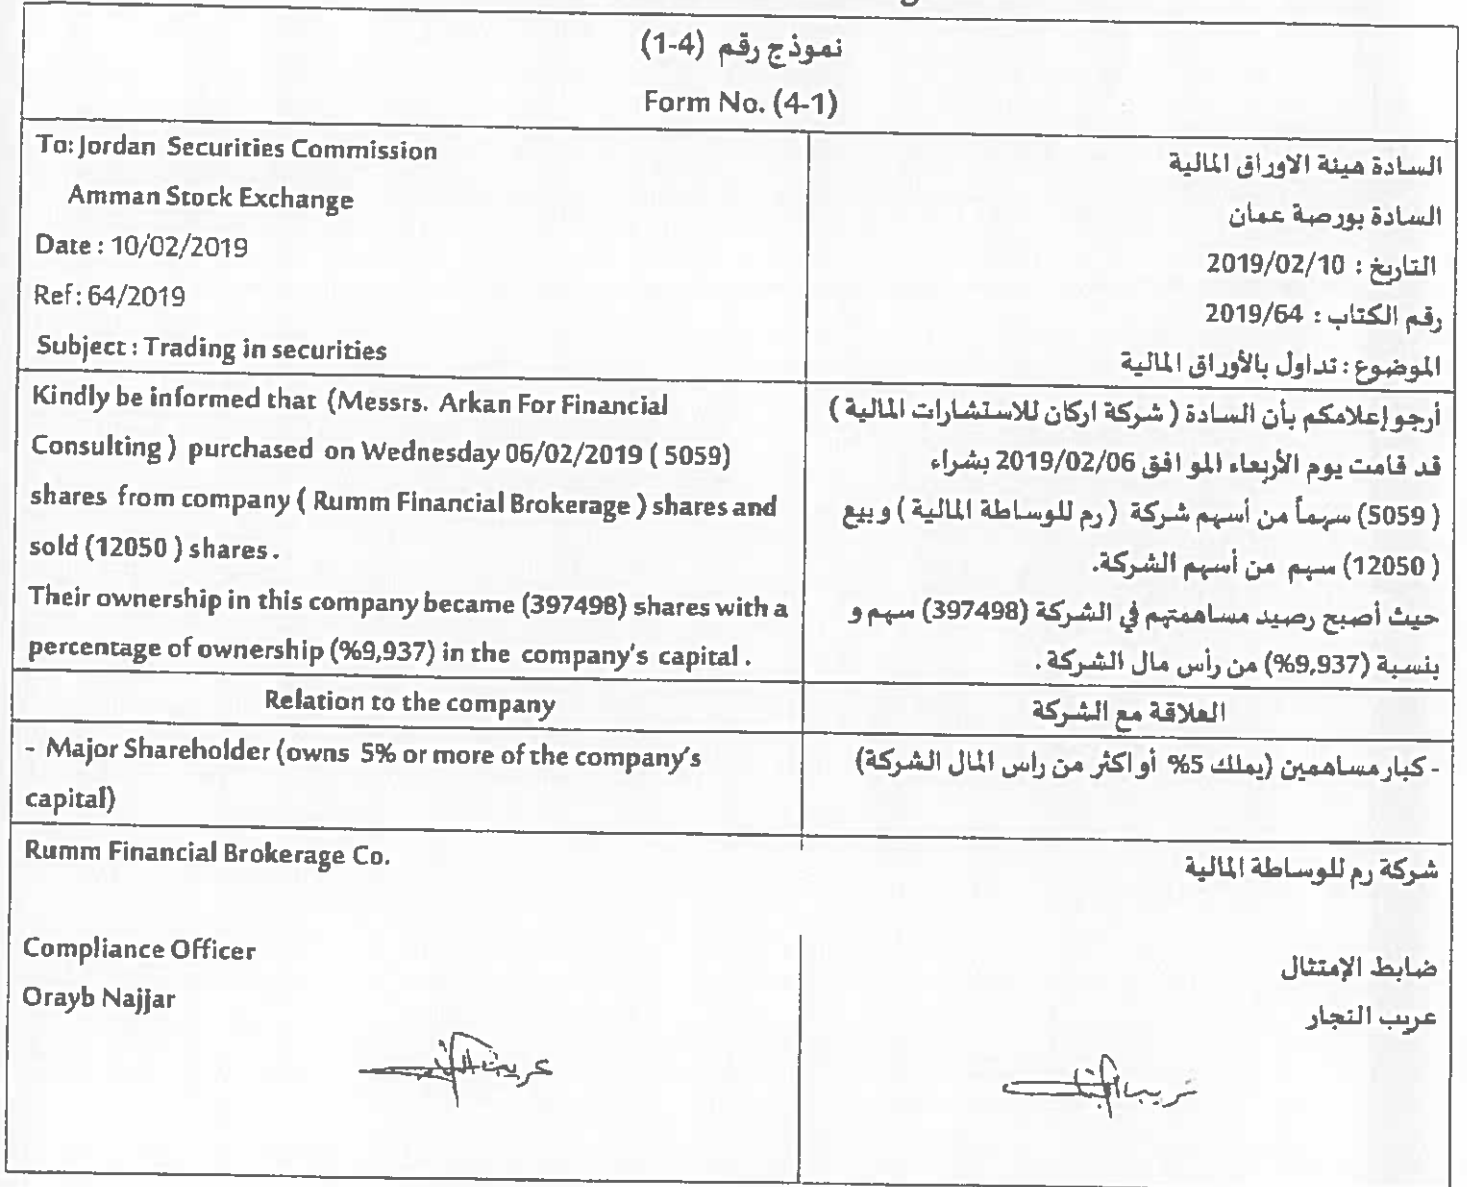 نموذج رقم (1-4)
Form No. (4-1)
To: Jordan Securities Commission
Amman Stock Exchange
Date : 10/02/2019
Ref : 64/2019
Subject : Trading in securities
السادة هيئة الاوراق المالية
السادة بورصة عمان
التاريخ : 2019/02/10
رقم الكتاب : 2019/64
الموضوع : تداول بالأوراق المالية
Kindly be informed that (Messrs. Arkan For Financial
Consulting ) purchased on Wednesday 06/02/2019 ( 5059)
shares from company ( Rumm Financial Brokerage ) shares and
sold (12050 ) shares .
Their ownership in this company became (397498) shares with a
percentage of ownership (%9,937) in the company's capital .
أرجو إعلامكم بأن السادة ( شركة اركان للاستشارات المالية )
قد قامت يوم الأربعاء الموافق 2019/02/06 بشراء
( 5059) سهماً من أسهم شركة ( رم للوساطة المالية ) وبيع
( 12050) سهم من أسهم الشركة.
حيث أصبح رصيد مساهمتهم في الشركة (397498) سهم و
بنسبة (9,937%) من رأس مال الشركة .
Relation to the company
العلاقة مع الشركة
- Major Shareholder (owns 5% or more of the company's
capital)
- كبار مساهمين (يملك 5% أو اكثر من راس المال الشركة)
Rumm Financial Brokerage Co.
شركة رم للوساطة المالية
Compliance Officer
Orayb Najjar
ضابط الإمتثال
عريب النجار